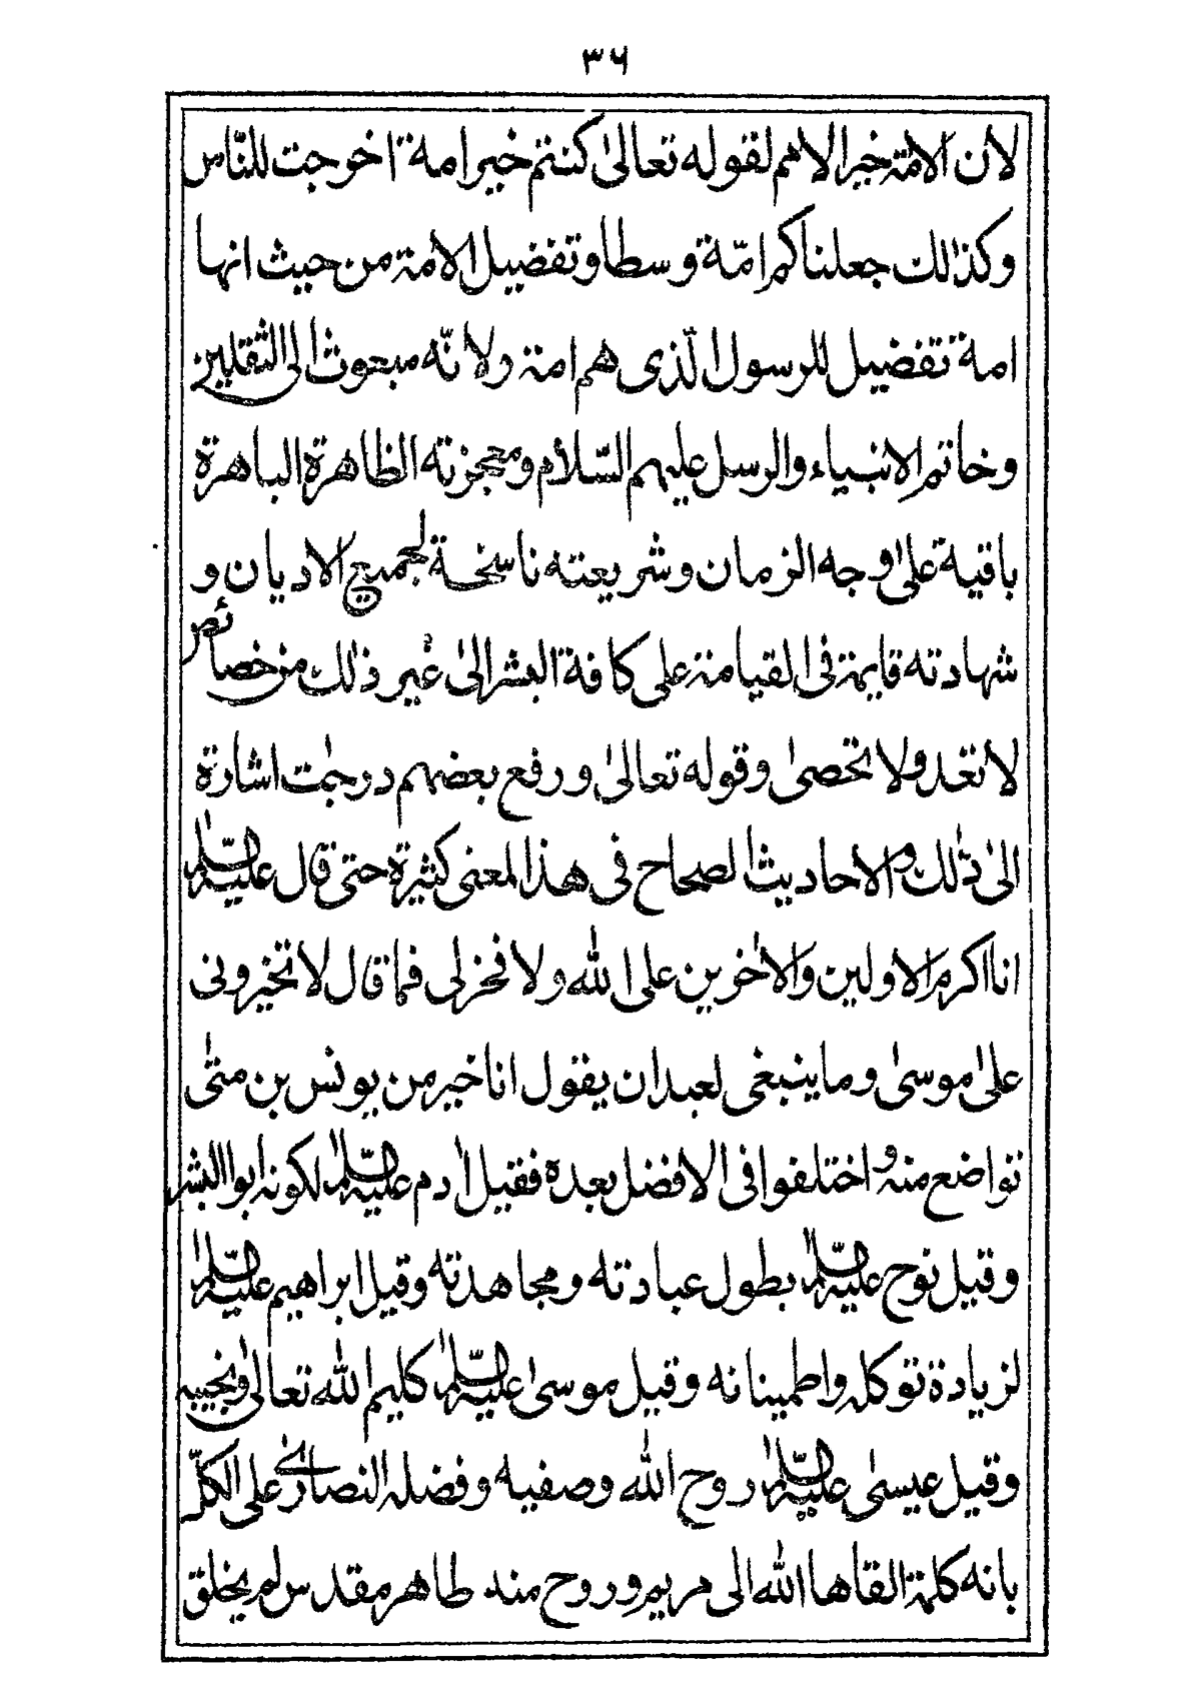 ٣٦
لان الامة خير الامم لقوله تعالىٰ كنتم خير امة اخرجت للنّاس
وكذٰلك جعلناكم امّة وسطا وتفضيل الامة من حيث انها
امة تفضيل للرسول الّذى هم امة ولانّه مبعوث الى الثقلين
وخاتم الانبياء والرسل عليهم السّلام ومعجزته الظاهرة الباهرة
باقية علىٰ وجه الزمان وشريعته ناسخة لجميع الاديان و
شهادته قايمة فى القيامة على كافة البشر الىٰ غير ذٰلك من خصائص
لا تعد ولا تحصىٰ وقوله تعالىٰ ورفع بعضهم درجٰت اشارة
الىٰ ذٰلك والاحاديث الصحاح فى هذا المعنى كثيرة حتى قال عليه السّلام
انا اكرم الاولين والاٰخرين على الله ولا فخر لى فما قال لا تخيرونى
علىٰ موسىٰ وما ينبغى لعبد ان يقول انا خير من يونس بن متىٰ
تواضع منه واختلفوا فى الافضل بعده فقيل اٰدم عليه السّلام لكونه ابوا البشر
وقيل نوح عليه السّلام بطول عبادته ومجاهدته وقيل ابراهيم عليه السّلام
لزيادة توكله واطمينانه وقيل موسىٰ عليه السّلام كليم الله تعالىٰ ونجيبه
وقيل عيسىٰ عليه السّلام روح الله وصفيه وفضله النصارىٰ على الكلّ
بانه كلمة القاها الله الى مريم وروح منه طاهر مقدس لم يخلق